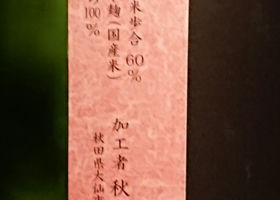 米歩合 60%
麹(国産米)
100%
加工者 秋
秋田県大仙市